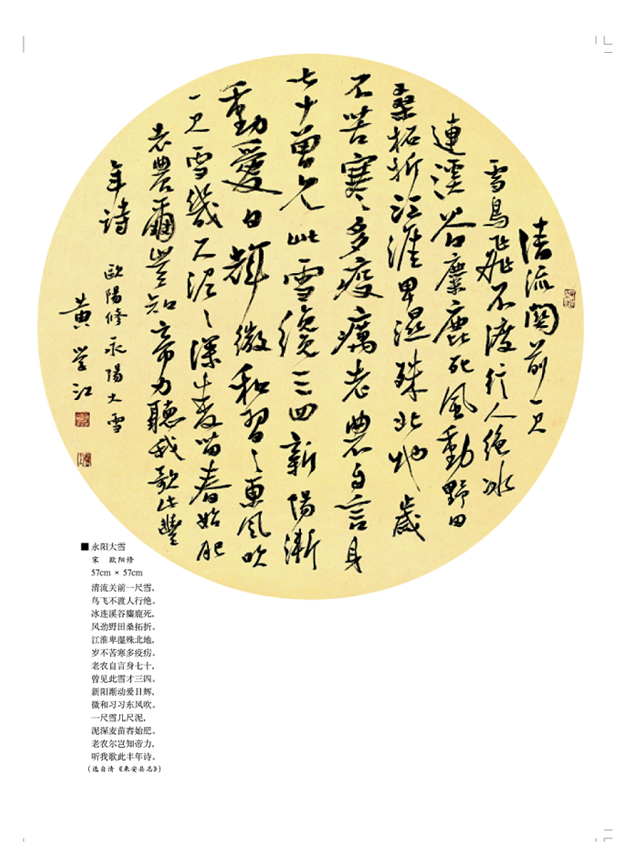 清流關前一尺
雪鳥飛不渡行人絶冰
連溪谷麋鹿死風動野田
桑柘折江淮卑濕殊北地歲
不苦寒々多疫癘老農自言身
七十曾見此雪纔三四新陽漸
動愛日輝微和習々東風吹
一尺雪幾尺泥々深麥苗春始肥
老農爾豈知帝力聽我歌此豐
年詩
歐陽修永陽大雪
黄学江
■永阳大雪
宋 欧阳修
57cm × 57cm
清流关前一尺雪,
鸟飞不渡人行绝。
冰连溪谷麋鹿死,
风劲野田桑拓折。
江淮卑湿殊北地,
岁不苦寒多疫疠。
老农自言身七十,
曾见此雪才三四。
新阳渐动爱日辉,
微和习习东风吹。
一尺雪几尺泥,
泥深麦苗春始肥。
老农尔岂知帝力,
听我歌此丰年诗。
(选自清《来安县志》)